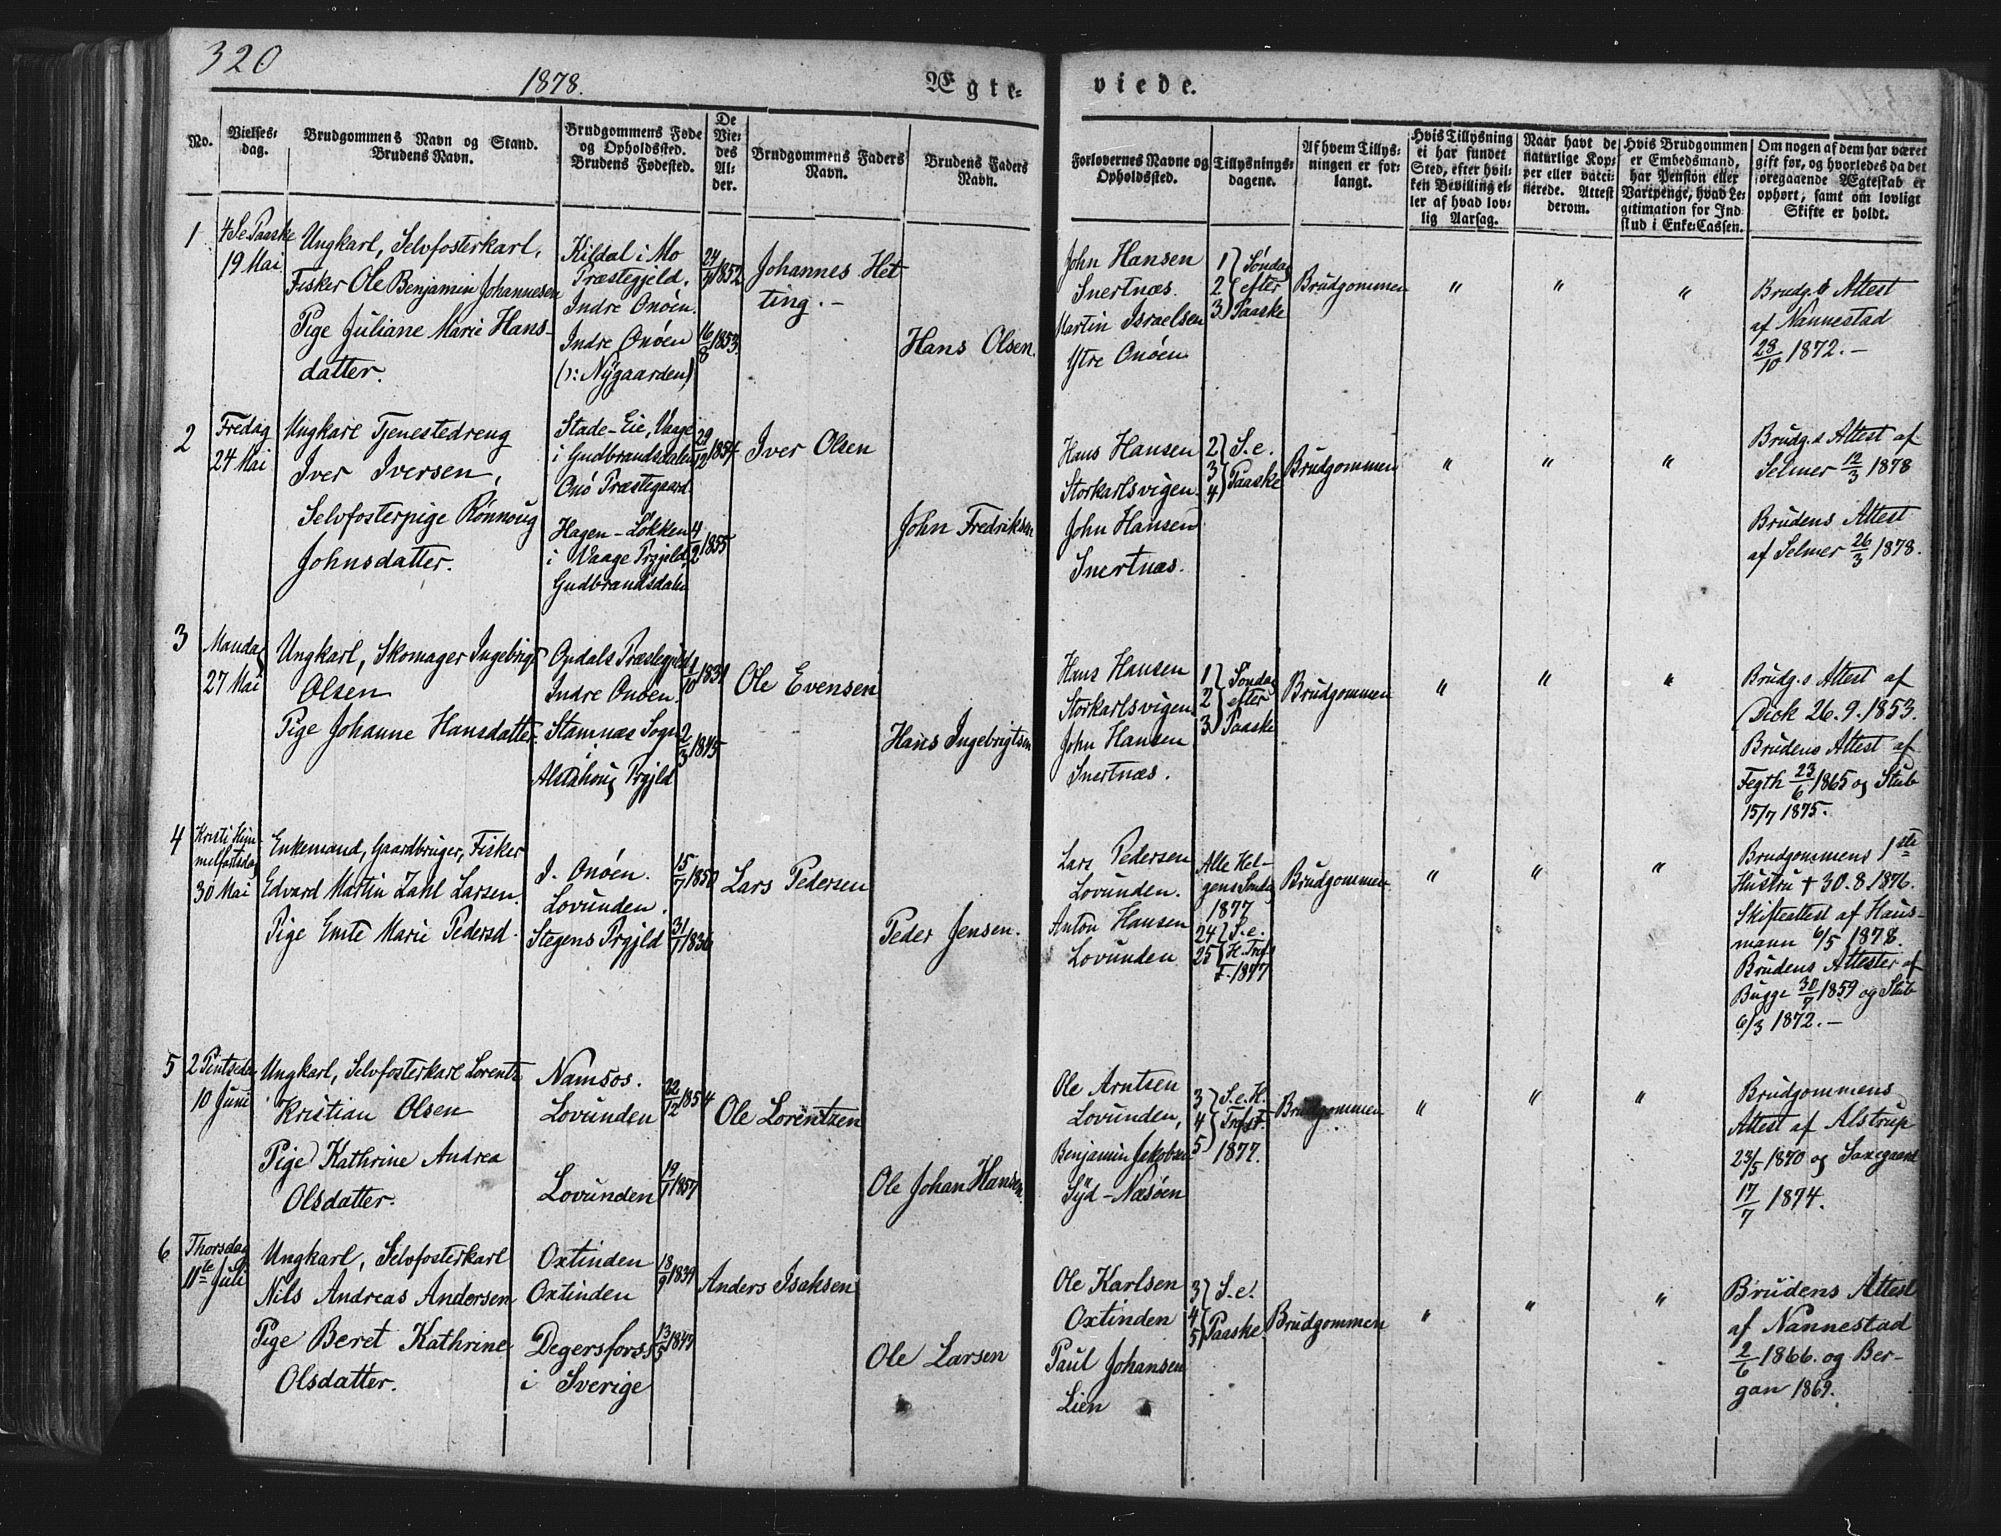 320
1878.
Ægte-
viede.
No.
Vielses-
dag.
Brudgommens Navn og Stand.
Brudens Navn.
Brudgommens Føde
og Opholdssted.
Brudens Fødested.
De
Vie-
des
Al-
der.
Brudgommens Faders
Navn.
Brudens Faders
Navn.
Forlovernes Navne og
Opholdssted.
Tillysnings-
dagene.
Af hvem Tillys-
ningen er for-
langt.
Hvis Tillysning
ei har fundet
Sted, efter hvil-
ken Bevilling el-
ler af hvad lov-
lig Aarsag.
Naar havt de
naturlige Kop-
per eller vacci-
nerede. Attest
derom.
Hvis Brudgommen
er Embedsmand,
har Pension eller
Vartpenge, hvad Le-
gitimation for Ind-
stud i Enke-Cassen.
Om nogen af dem har været
gift før, og hvorledes da det
foregaaende Ægteskab er
ophørt, samt om lovligt
Skifte er holdt.
1
4 Se Paaske
19 Mai
Ungkarl, Selvfosterkarl,
Fisker Ole Benjamin Johannesen
Pige Juliane Marie Hans-
datter.
Kildal i Mo
Præstegjeld,
Indre Onöen.
Indre Onöen
(ɔ: Nÿgaarden)
24/4 1852
16/8 1853.
Johannes Het
ting. –
Hans Olsen.
John Hansen
Snertnæs.
Martin Israelsen
Ytre Onöen
1 } Søndag
2 } efter
3 } Paaske
Brudgommen
"
"
"
Brudg.s Attest
af Nannestad
28/10 1872. –
2
Fredag
24 Mai
Ungkarl Tjenestedreng
Iver Iversen,
Selvfosterpige Rönnoug
Johnsdatter.
Stade-Eie, Vaage
i Gudbrandsdalen
Onö Præstegaard.
Hagen-Lökken
i Vaage Prgjeld
Gudbrandsdalen
29/12 1854.
4/2 1855
Iver Olsen
John Fredriksen
Hans Hansen
Storkarlsvigen.
John Hansen
Snertnæs.
2 } S. e.
3 } Paaske
4
Brudgommen
"
"
"
Brudg.s Attest af
Selmer 12/3 1878
Brudens Attest
af Selmer 26/3 1878.
3
Mandag
27 Mai
Ungkarl, Skomager Ingebrigt
Olsen
Pige Johanne Hansdatter.
Opdals Præstegjeld
Indre Onöen.
Stamnæs Sogn
i
Alstahoug Prgjld
1/10 1831
2/3 1845
Ole Evensen
Hans Ingebrigtsen
Hans Hansen
Storkarlsvigen
John Hansen
Snertnæs.
1 } Søndag
2 } efter
3 } Paaske
Brudgommen
"
"
"
Brudg.s Attest af
Dick 26. 9. 1853.
Brudens Attest af
Fegth 23/6 1865 og Stub
15/7 1875.
4
Kristi Him-
melfartsdag
30 Mai
Enkemand, Gaardbruger, Fisker
Edvard Martin Zahl Larsen.
Pige Emte Marie Pedersd.
I. Onöen.
Lovunden.
Stegens Prgjld
15/7 1850
31/7 1836
Lars Pedersen
Peder Jensen.
Lars Pedersen
Lovunden.
Anton Hansen
Lovunden
Alle Hel-
gens Sönda
1877
24 } S. e.
25 } H. Tref.
F. 1877
Brudgommen
"
"
"
Brudgommens 1ste
Hustru † 30. 8. 1876.
Skifteattest af Haus-
mann 6/5 1878.
Brudens Attester af
Bugge 30/7 1859 og Stub
6/3 1872. –
5
2 Pintsedag
10 Juni
Ungkarl, Selvfosterkarl Lorents
Kristian Olsen
Pige Kathrine Andrea
Olsdatter.
Namsos.
Lovunden
Lovunden
22/12 1854
19/7 1857
Ole Lorentzen
Ole Johan Hansen.
Ole Arntsen
Lovunden,
Benjamin Jakobsen
Sÿd-Næsöen
3 } S. e. H.
4 } Tref. F.
5 } 1877.
Brudgommen
"
"
"
Brudgommens
Attest af Alstrup
23/5 1870 og Saxegaard
17/7 1874.
6
Thorsdag
11te Juli
Ungkarl, Selvfosterkarl
Nils Andreas Andersen
Pige Beret Kathrine
Olsdatter.
Oxtinden
Oxtinden
Degersfors
i Sverige
18/9 1839
13/5 1843
Anders Isaksen
Ole Larsen
Ole Karlsen
Oxtinden
Paul Johansen
Lien
3 } S. e.
4
5 } Paaske
Brudgommen
"
"
"
Brudens Attest
af Nannestad
2/6 1866. og Ber-
gan 1869.